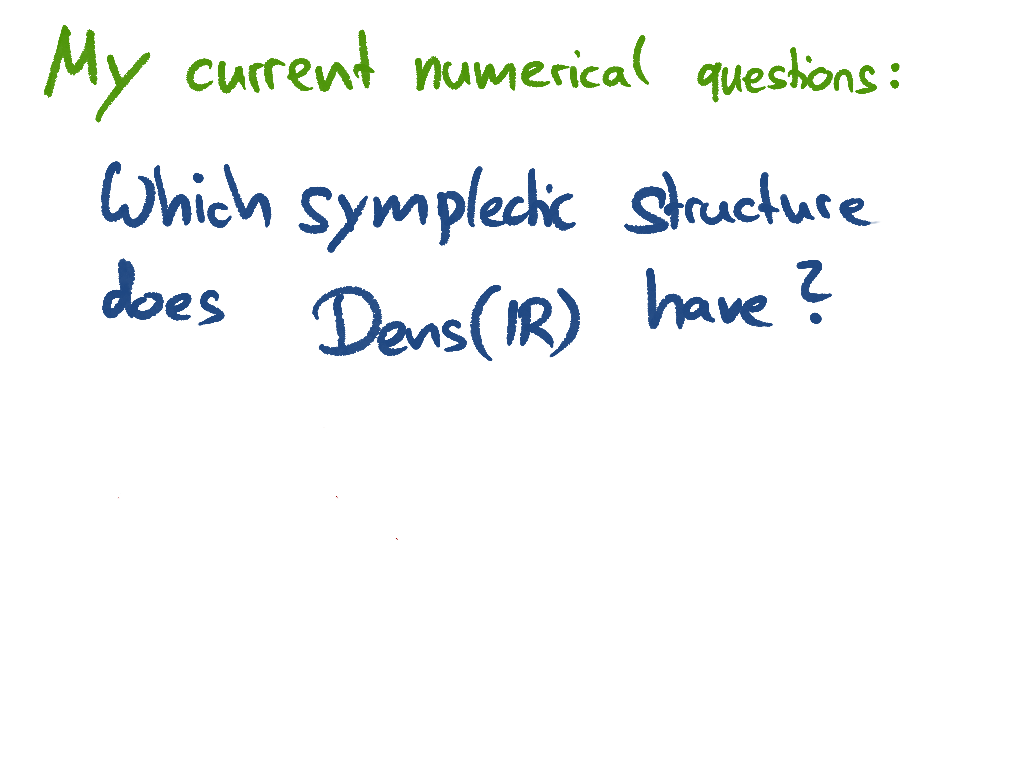 My current numerical questions:
Which symplectic structure
does Dens(ℝ) have?